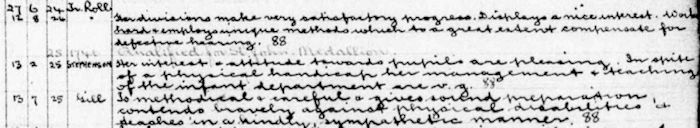 27 6 24 Jr. Roll
12 8 26 " Her divisions make very satisfactory progress. Displays a nice interest. Works
hard & employs unique methods which to a great extent compensate for
defective hearing. 88
Qualified in St John Medallion.
13 2 25 STEPHENSON Her interest & attitude towards pupils are pleasing. In spite
of a physical handicap her management & teaching
of the infant department are v.g. 88
13 7 25 Gill Is methodical & careful & gives sound preparation
contends bravely against physical disabilities &
teaches in a kindly, sympathetic manner. 88